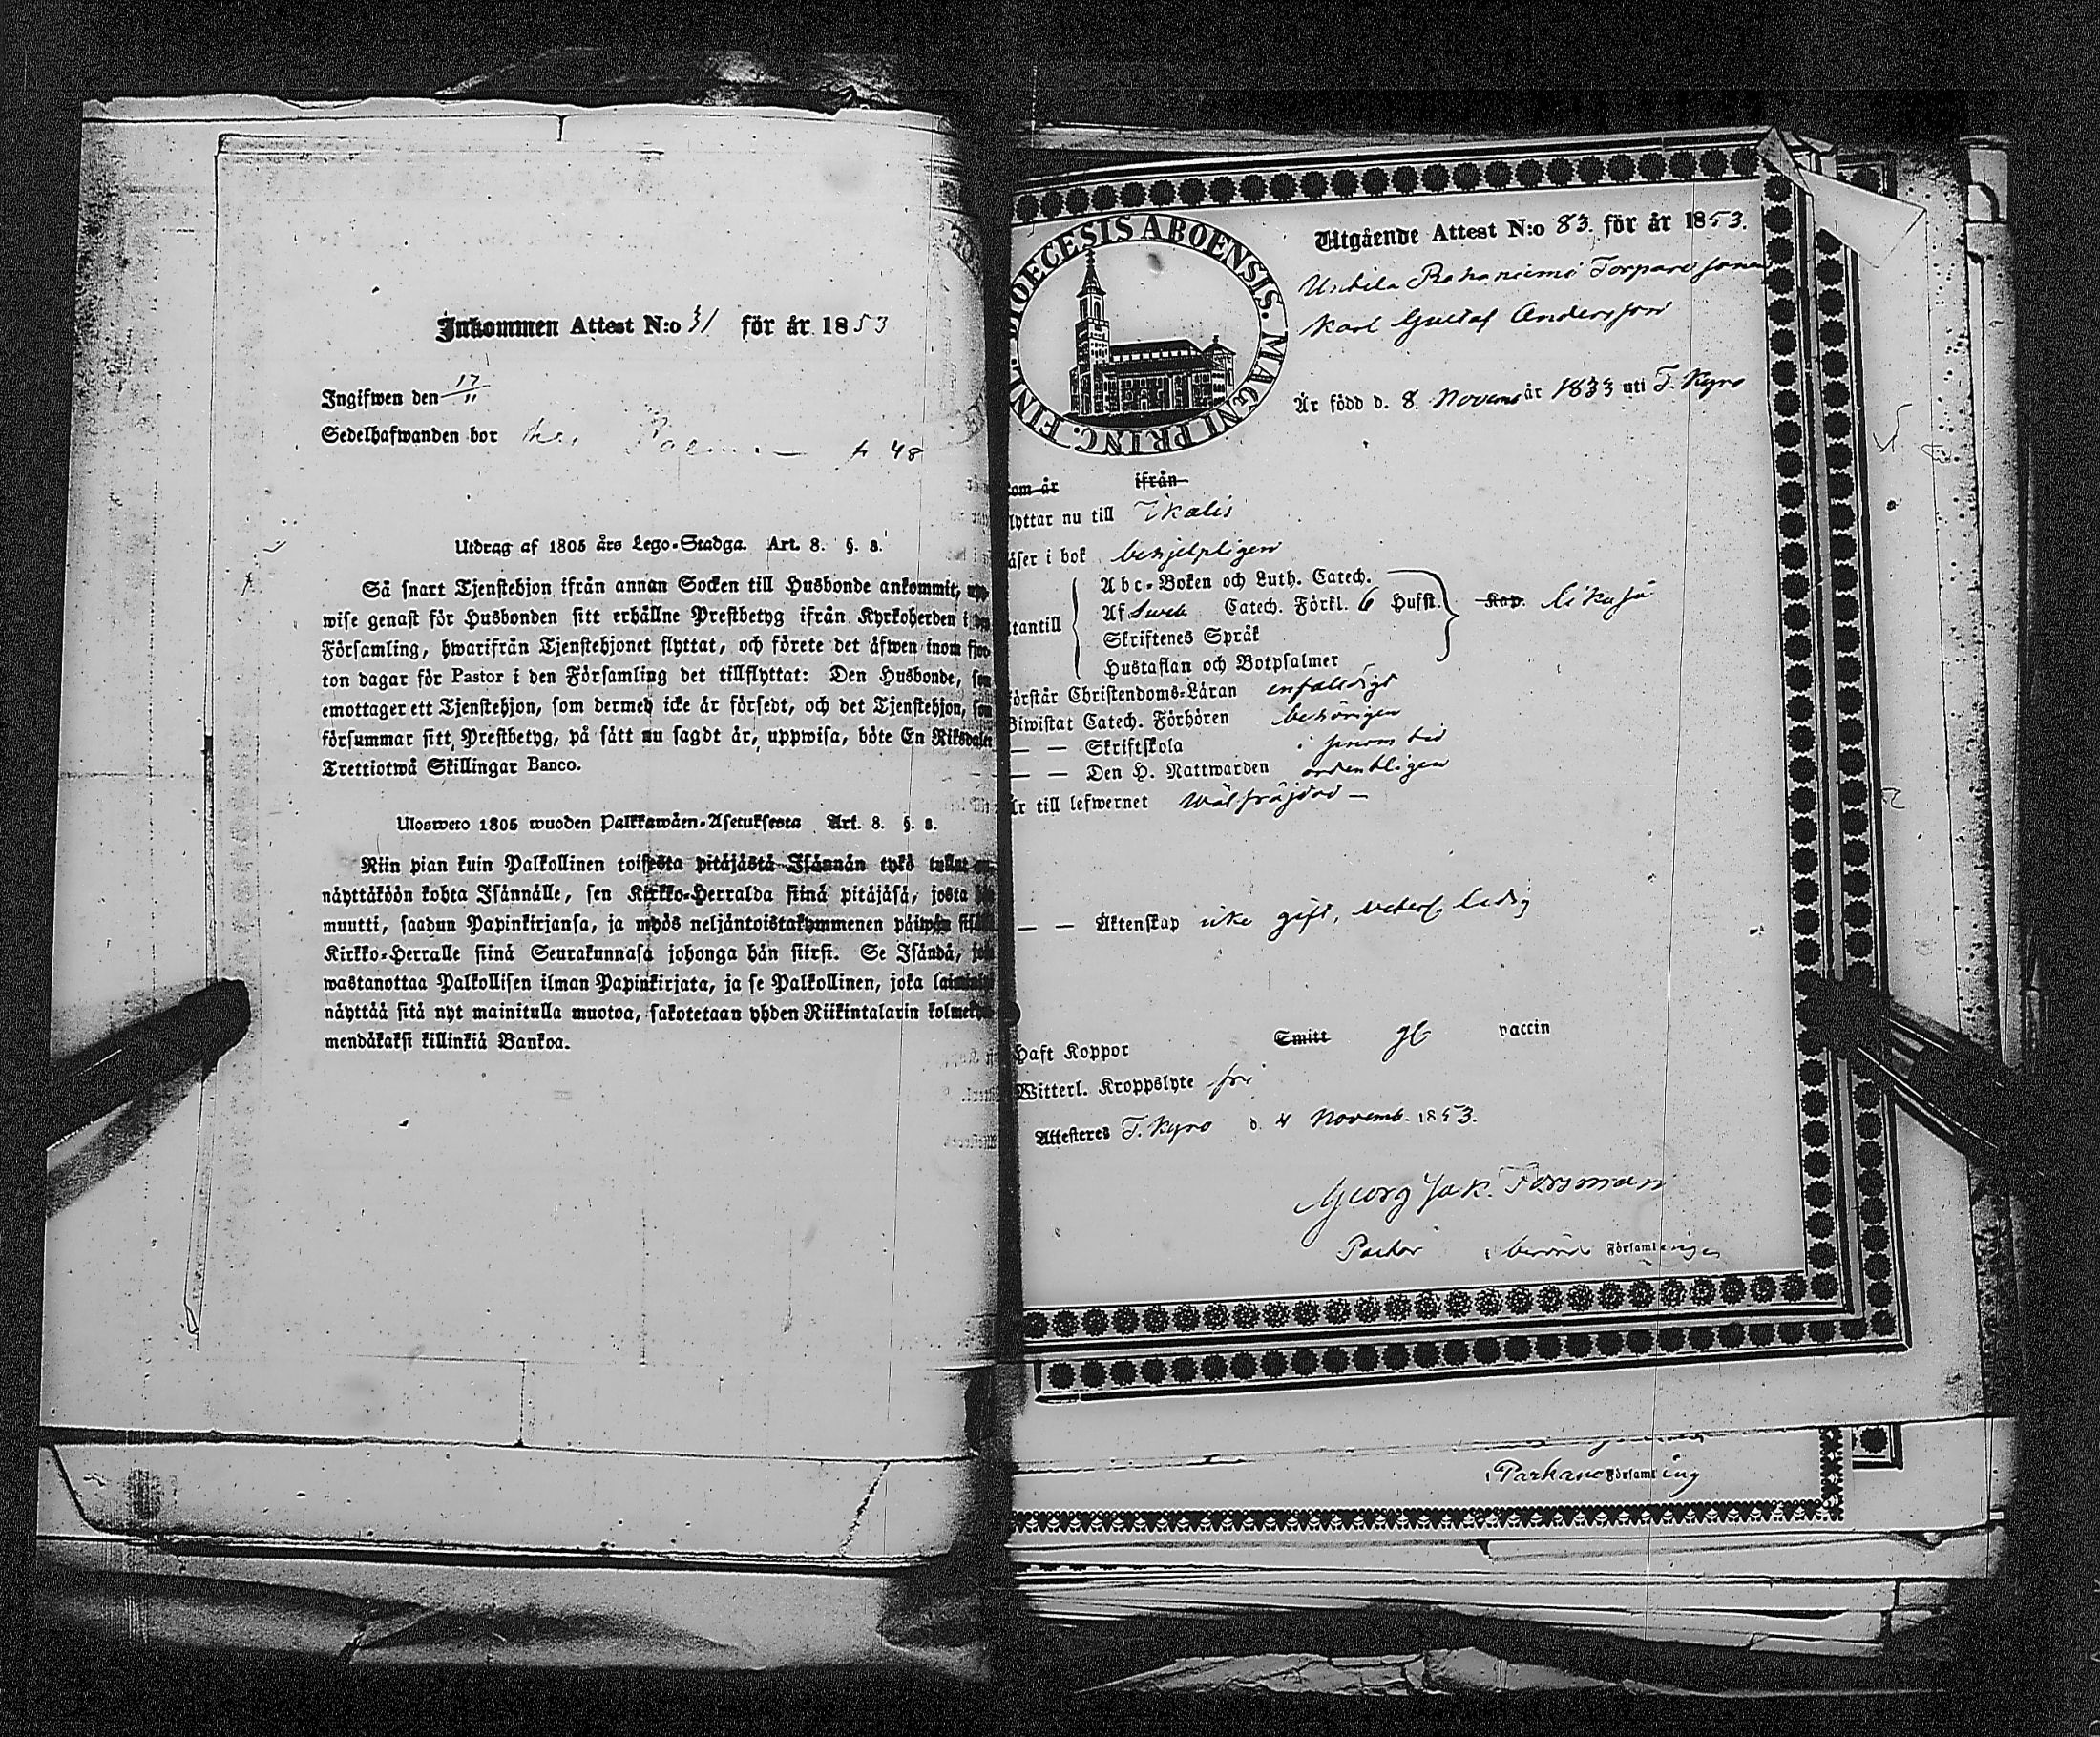 Inkommen Attest N:o 31 för år 1853
Ingifwen den 17/11
Sedelhafwanden bor hos 48
Utdrag af 1805 års Lego-Stadga. Art. 8. §. 8.
Så snart Tjenstehjon ifrån annan Socken till Husbonde ankommit, upp-
wise genast för Husbonden sitt erhållne Prestbetyg ifrån Kyrkoherden i
Församling, hwarifrån Tjenstehjonet flyttat, och förete det äfwen inom fjor-
ton dagar för Pastor i den Församling det tillflyttat: Den Husbonde, som
emottager ett Tjenstehjon, som dermed icke är försedt, och det Tjenstehjon, som
försummar sitt Prestbetyg, på sätt nu sagdt är, uppwisa, böte En Riksdaler
Trettiotwå Skillingar Banco.
Uloswето 1805 wuoden Palkkawäen-Asetuksesta Art. 8. §. 8.
Niin pian kuin Palkollinen toisesta pitäjästä Isännän tykö tullut on
näyttäköön kohta Isännälle, sen Kirkko-Herralda siinä pitäjäsä, josta
muutti, saadun Papinkirjansa, ja myös neljäntoistakymmenen päiwän
Kirkko-Herralle siinä Seurakunnasa johonga hän siirsi. Se Isändä, joka
wastanottaa Palkollisen ilman Papinkirjata, ja se Palkollinen, joka
näyttää sitä nyt mainitulla muotoa, sakotetaan yhden Riikintalarin kolmeky-
mendäkaksi killinkiä Bankoa.
FINL. DIOECESIS ABOENSIS. MAGNI PRINC.
Utgående Attest N:o 83 för år 1853.
Torpare sonen
Karl Gustaf Andersson
Är född d. 8 Novemb år 1833 uti T. Kyro
kom år ifrån
lyttar nu till Ikalis
äser i bok behjelpligen
Abc-Boken och Luth. Catech.
Af Sweb Catech. Förkl. 6 Hufst. Kap. likaså
tantill
Skriftenes Språk
Hustaflan och Botpsalmer
örstår Christendoms-Läran enfaldigt
Biwistat Catech. Förhören behörigen
— — Skriftskola i sinom tid
— — Den H. Nattwarden ordentligen
Är till lefwernet wälfräjdad —
— — Äktenskap icke gift, ledig
Haft Koppor Smitt vaccin
Witterl. Kroppslyte fri
Attesteres T. Kyro d. 4 Novemb. 1853.
Georg Jak. Forsman
Pastor i berörde Församlingen
i Parkano Församling